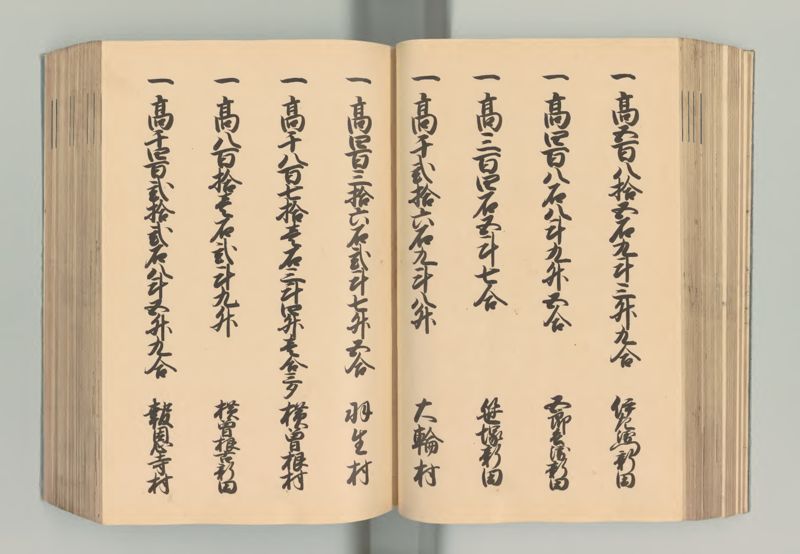 一 高五百八拾五石九斗三升九合 伊左衛門新田
一 高四百八石八斗九升五合 五郎兵衛新田
一 高三百四石五斗七合 笹塚新田
一 高千弐拾六石九斗八升 大輪村
一 高四百三拾六石弐斗七升五合 羽生村
一 高千八百七拾壱石三斗四升壱合三夕 横曽根村
一 高八百拾壱石弐斗九升 横曽根古新田
一 高千四百弐拾弐石八斗五升九合 報恩寺村